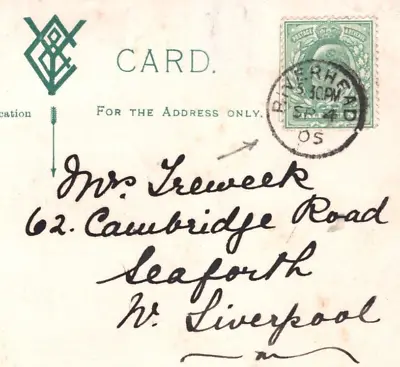 CARD.
cation
FOR THE ADDRESS ONLY.
POSTAGE REVENUE
RIVERHEAD
5.30PM
SP 4
05
Mrs Treweek
62. Cambridge Road
Seaforth
Nr. Liverpool